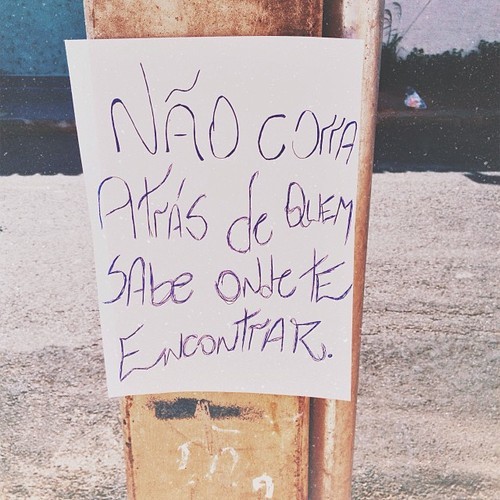 NÃO CORRA
ATRÁS de QUEM
SAbe ONde TE
ENCONTRAR.